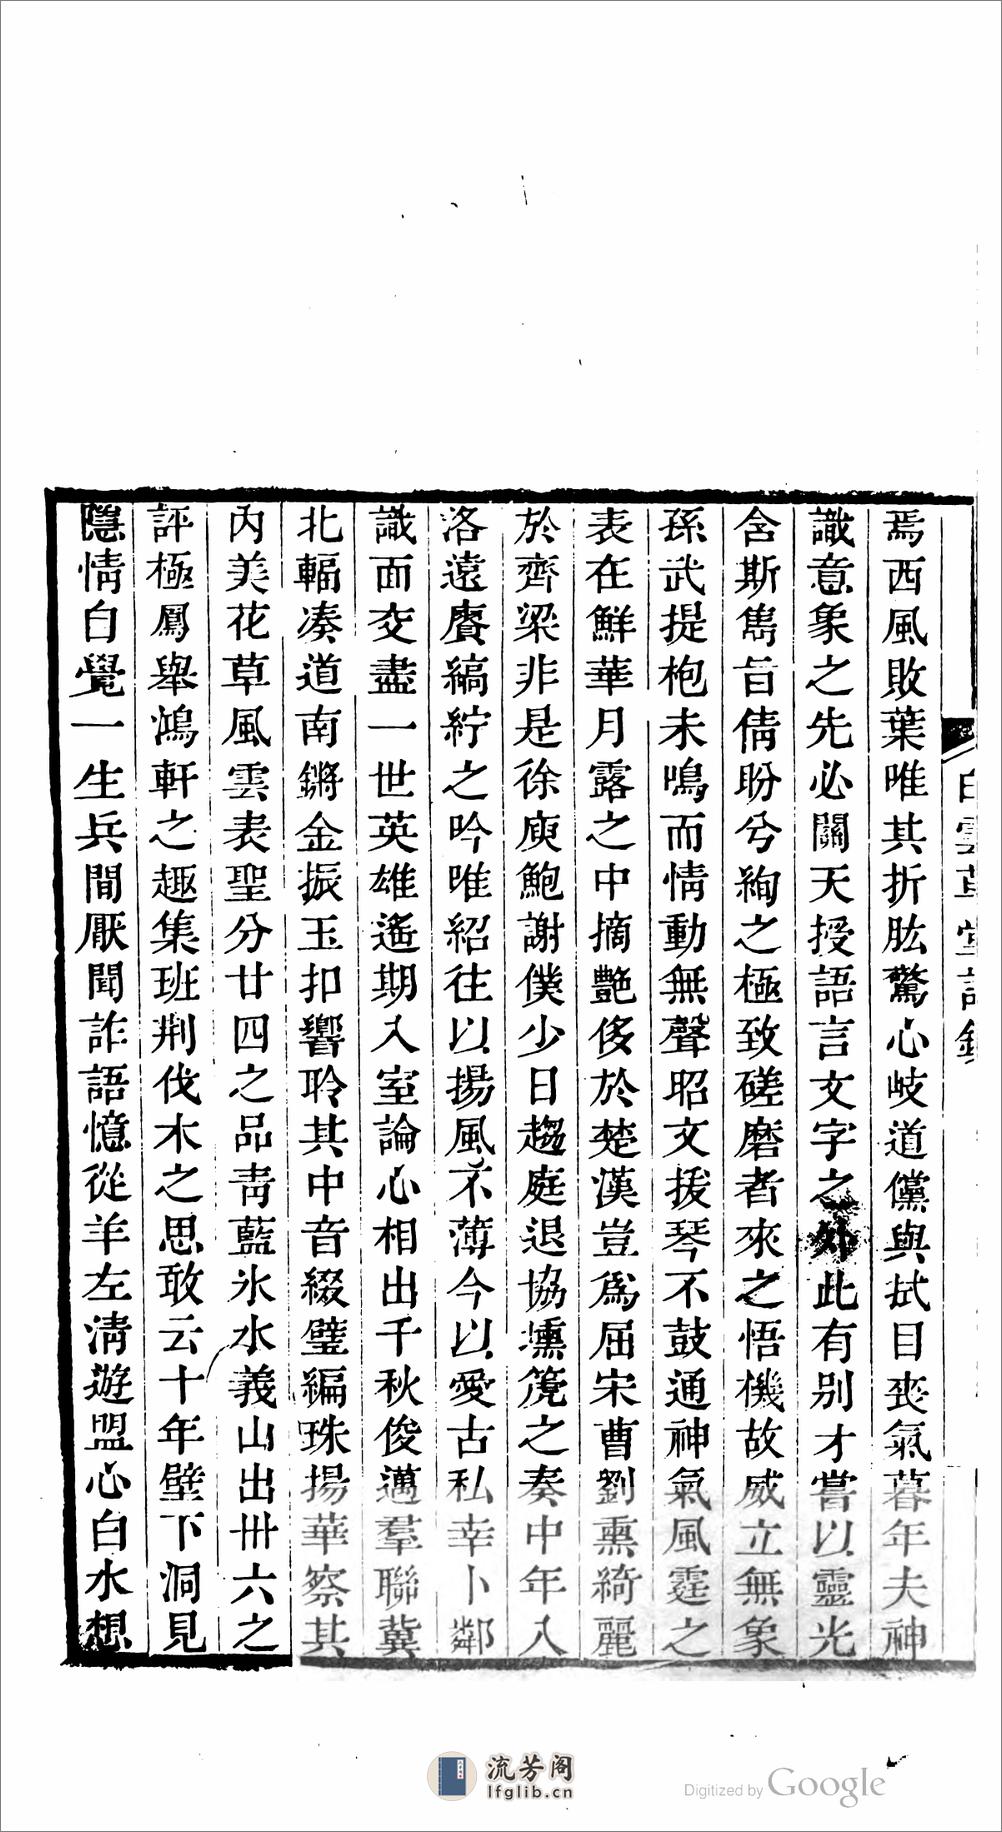 焉西風敗葉唯其折肱驚心岐道儻與拭目喪氣暮年夫神
識意象之先必關天授語言文字之外此有别才嘗以靈光
含斯雋旨倩盼兮絢之極致磋磨者來之悟機故威立無象
孫武提枹未鳴而情動無聲昭文援琴不鼓通神氣風霆之
表在鮮華月露之中摘艷侈於楚漢豈爲屈宋曹劉熏綺麗
於齊梁非是徐庾鮑謝僕少日趨庭退協壎篪之奏中年入
洛遠賡縞紵之吟唯紹往以揚風不薄今以愛古私幸卜鄰
識面交盡一世英雄遙期入室論心相出千秋俊邁羣聯冀
北輻凑道南鏘金振玉扣響聆其中音綴璧編珠揚華察其
內美花草風雲表聖分廿四之品靑藍氷水義山出卌六之
評極鳳舉鴻軒之趣集班荆伐木之思敢云十年壁下洞見
隱情自覺一生兵間厭聞詐語憶從羊左淸遊盟心白水想
白雲草堂詩鈔
流芳阁
lfglib.cn
Digitized by Google